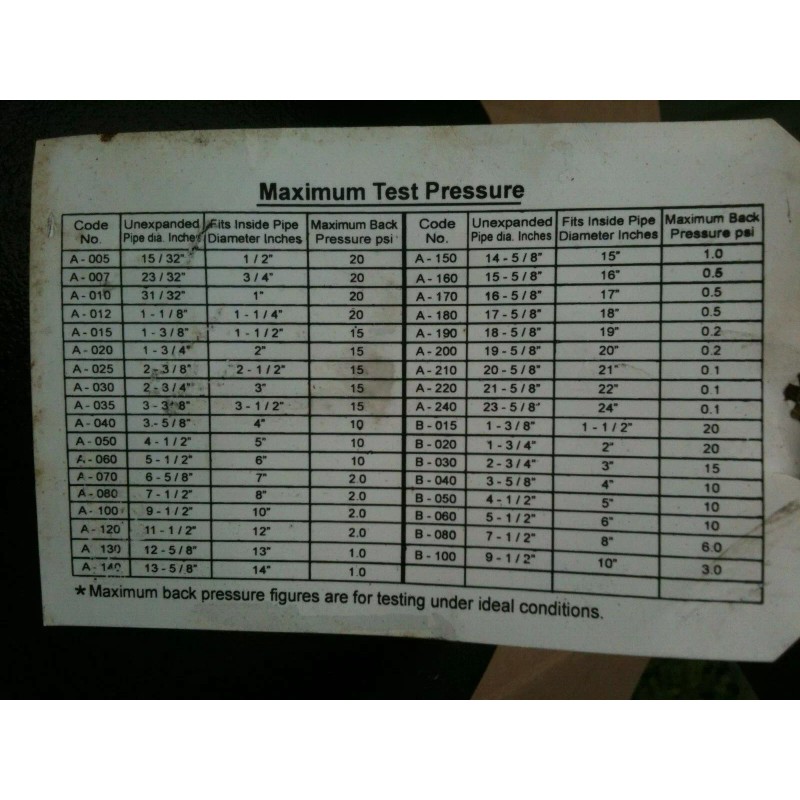 Maximum Test Pressure
Code No. Unexpanded Pipe dia. Inches Fits Inside Pipe Diameter Inches Maximum Back Pressure psi Code No. Unexpanded Pipe dia. Inches Fits Inside Pipe Diameter Inches Maximum Back Pressure psi
A - 005 15 / 32" 1 / 2" 20 A - 150 14 - 5 / 8" 15" 1.0
A - 007 23 / 32" 3 / 4" 20 A - 160 15 - 5 / 8" 16" 0.5
A - 010 31 / 32" 1" 20 A - 170 16 - 5 / 8" 17" 0.5
A - 012 1 - 1 / 8" 1 - 1 / 4" 20 A - 180 17 - 5 / 8" 18" 0.5
A - 015 1 - 3 / 8" 1 - 1 / 2" 15 A - 190 18 - 5 / 8" 19" 0.2
A - 020 1 - 3 / 4" 2" 15 A - 200 19 - 5 / 8" 20" 0.2
A - 025 2 - 3 / 8" 2 - 1 / 2" 15 A - 210 20 - 5 / 8" 21" 0.1
A - 030 2 - 3 / 4" 3" 15 A - 220 21 - 5 / 8" 22" 0.1
A - 035 3 - 3 / 8" 3 - 1 / 2" 15 A - 240 23 - 5 / 8" 24" 0.1
A - 040 3 - 5 / 8" 4" 10 B - 015 1 - 3 / 8" 1 - 1 / 2" 20
A - 050 4 - 1 / 2" 5" 10 B - 020 1 - 3 / 4" 2" 20
A - 060 5 - 1 / 2" 6" 10 B - 030 2 - 3 / 4" 3" 15
A - 070 6 - 5 / 8" 7" 2.0 B - 040 3 - 5 / 8" 4" 10
A - 080 7 - 1 / 2" 8" 2.0 B - 050 4 - 1 / 2" 5" 10
A - 100 9 - 1 / 2" 10" 2.0 B - 060 5 - 1 / 2" 6" 10
A - 120 11 - 1 / 2" 12" 2.0 B - 080 7 - 1 / 2" 8" 6.0
A - 130 12 - 5 / 8" 13" 1.0 B - 100 9 - 1 / 2" 10" 3.0
A - 140 13 - 5 / 8" 14" 1.0
* Maximum back pressure figures are for testing under ideal conditions.